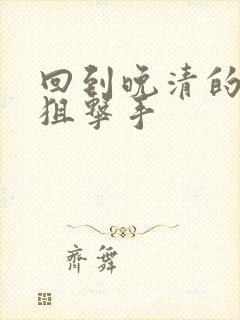 回到晚清的
狙撃手
齊舞